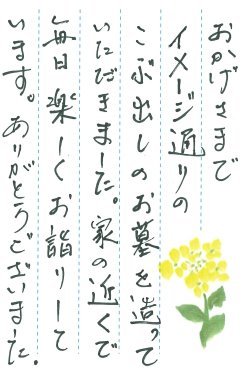 おかげさまで
イメージ通りの
こぶ出しのお墓を造って
いただきました。家の近くで
毎日楽しくお詣りして
います。ありがとうございました.